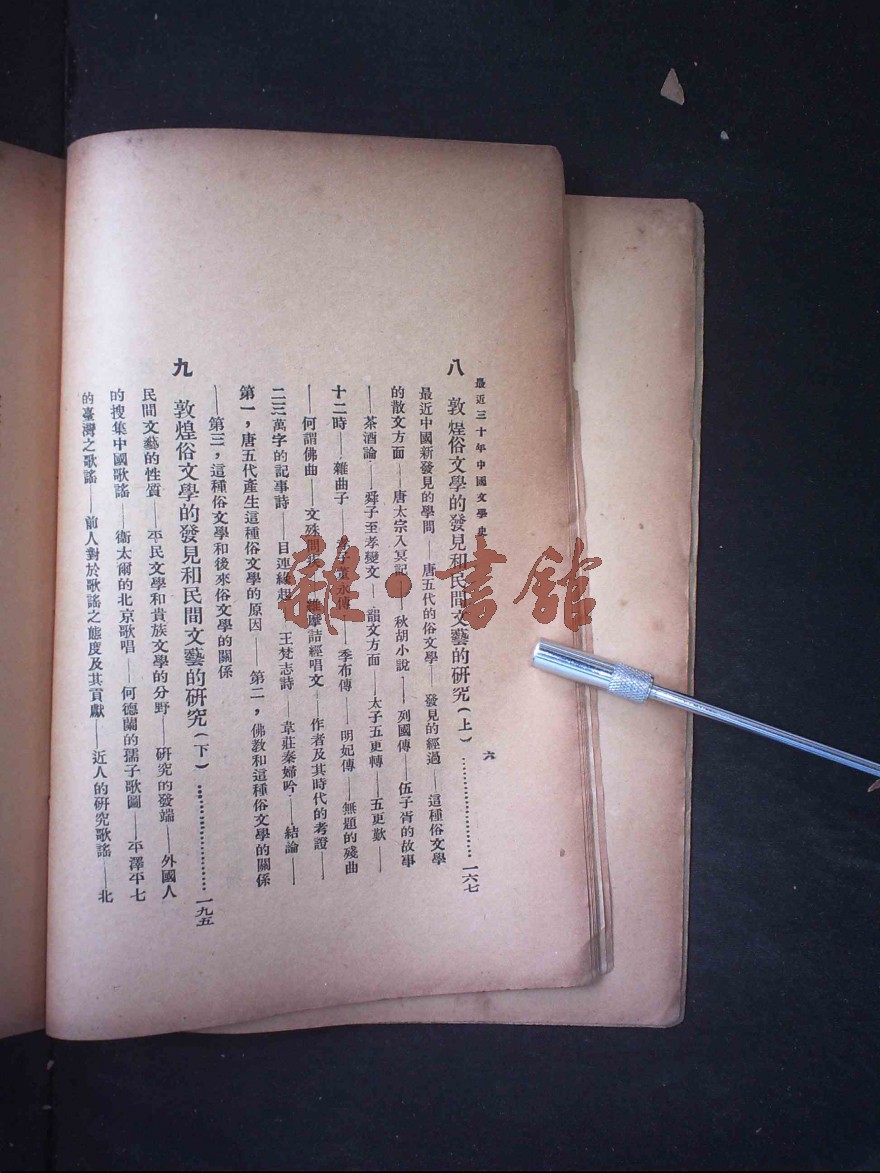 最近三十年中國文學史
六
八 敦煌俗文學的發見和民間文藝的研究(上)……………………一六七
最近中國新發見的學問——唐五代的俗文學——發見的經過——這種俗文學
的散文方面——唐太宗入冥記——秋胡小說——列國傳——伍子胥的故事
——茶酒論——舜子至孝變文——韻文方面——太子五更轉——五更歎——
十二時——雜曲子——孝子董永傳——季布傳——明妃傳——無題的殘曲
——何謂佛曲——文殊問疾——維摩詰經唱文——作者及其時代的考證——
二三萬字的記事詩——目連緣起——王梵志詩——韋莊秦婦吟——結論——
第一,唐五代產生這種俗文學的原因——第二,佛教和這種俗文學的關係
——第三,這種俗文學和後來俗文學的關係
九 敦煌俗文學的發見和民間文藝的研究(下)……………………一九五
民間文藝的性質——平民文學和貴族文學的分野——研究的發端——外國人
的搜集中國歌謠——衞太爾的北京歌唱——何德蘭的孺子歌圖——平澤平七
的臺灣之歌謠——前人對於歌謠之態度及其貢獻——近人的研究歌謠——北
雜·書館